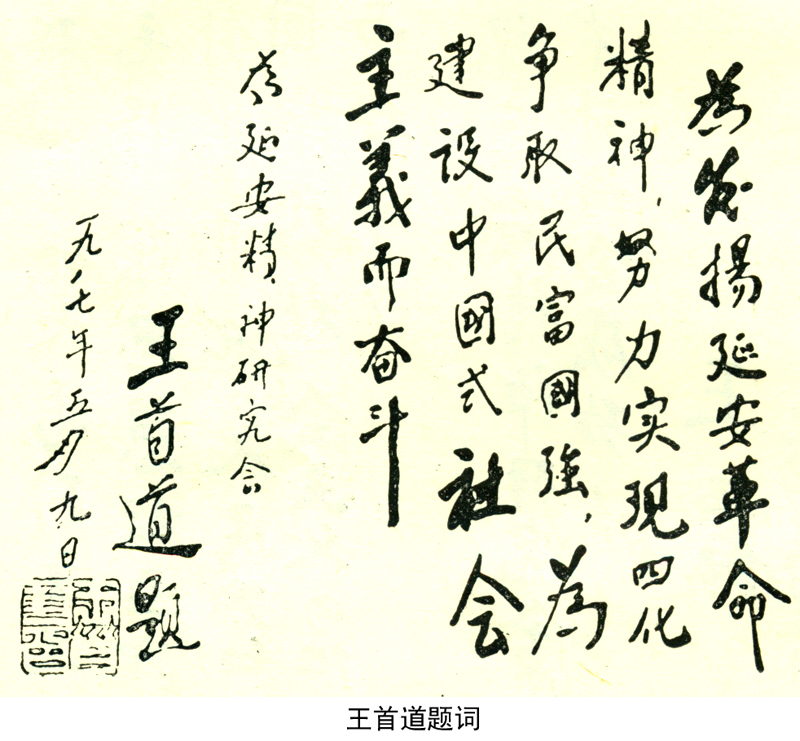 為发揚延安革命
精神，努力实现四化
争取民富國強，為
建设中國式社会
主義而奋斗
为延安精神研究会
王首道题
一九八七年五月九日
王首道题词